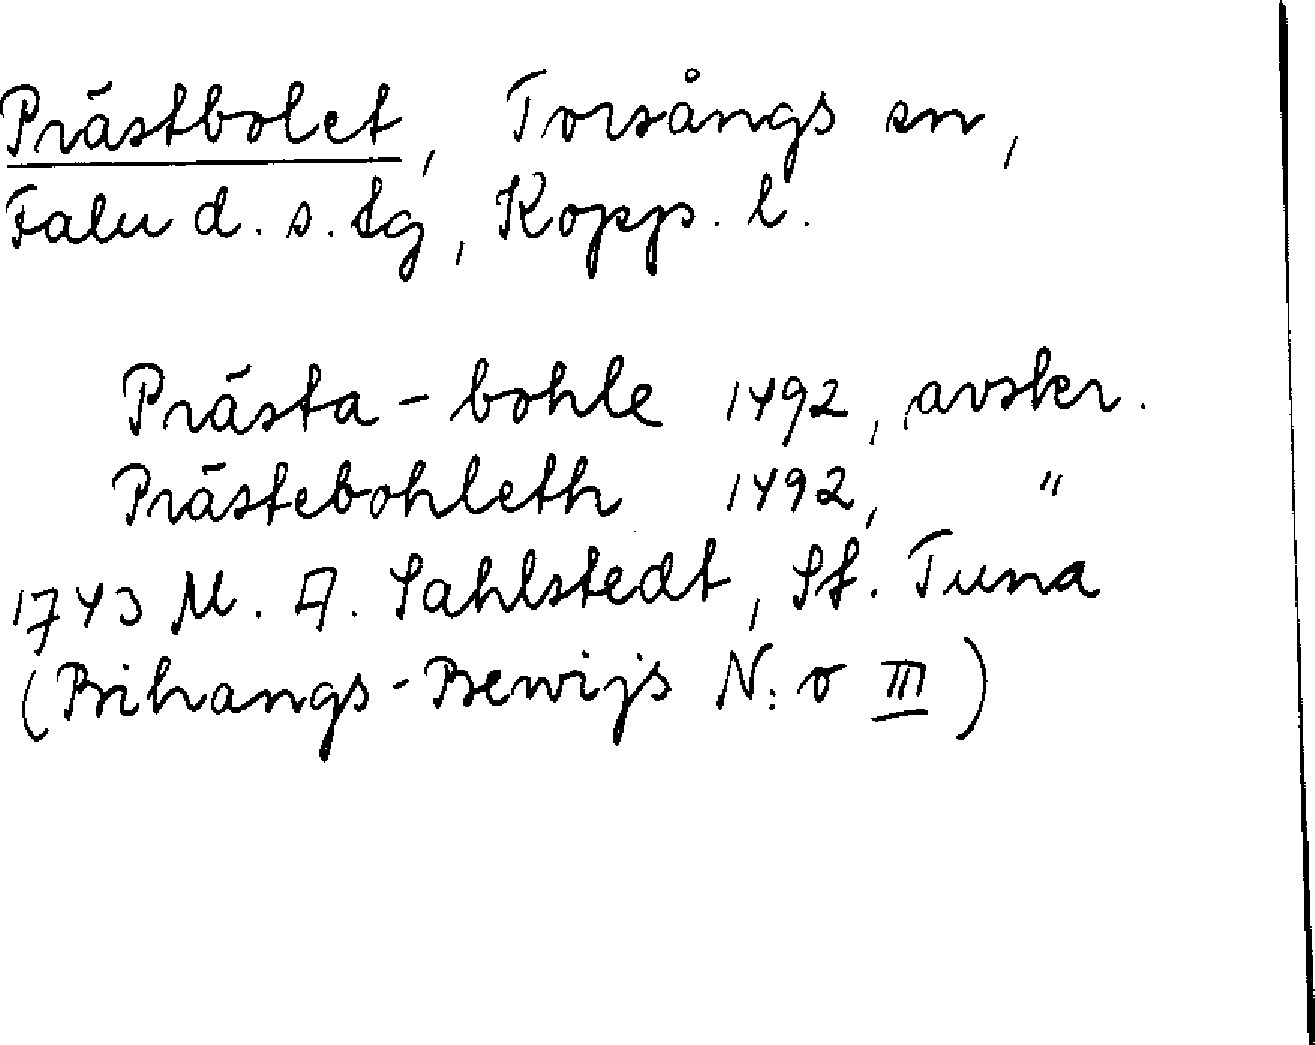 Prästbolet, Torsångs sn,
Falu d. s. tg, Kopp. l.
Prästa-bohle 1492, avskr.
Prästebohleth 1492, "
1743 M. A. Sahlstedt, St. Tuna
(Bihangs-Bewijs N:o III)